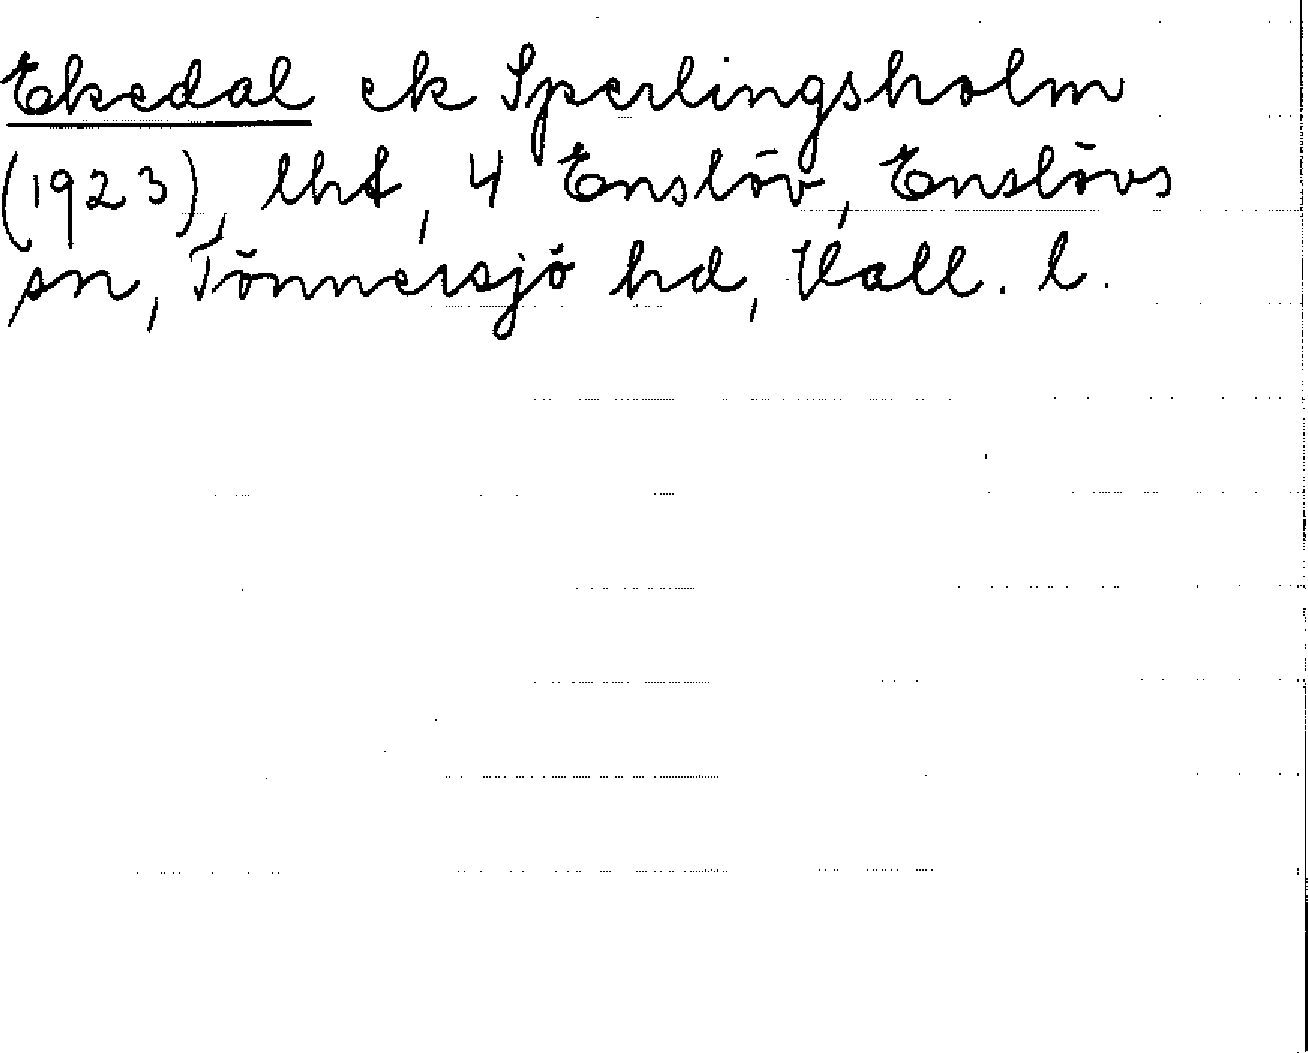 Ekedal ek Sperlingsholm
(1923), lht, 4 Enslöv, Enslövs
sn, Tönnersjö hd, Hall. l.